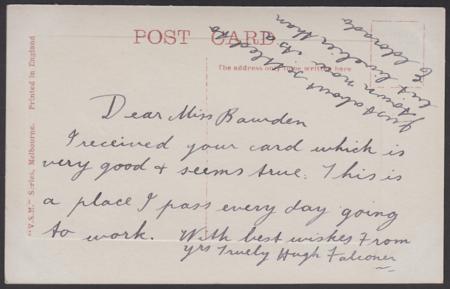 POST CARD
The address only to be written here
"V.S.M." Series, Melbourne. Printed in England
Just about settled
town now its a
bit livelier than
Dear Miss Bawden
I received your card which is
very good & seems true. This is
a place I pass every day going
to work. With best wishes From
yrs Truely Hugh Falconer